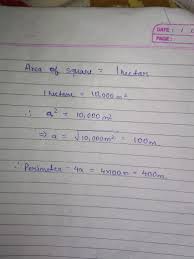 DATE: / /
PAGE:
Area of square = 1 hectar
1 hectare = 10,000 m²
∴ a² = 10,000 m²
⇒ a = √10,000 m² = 100m.
∴ Perimeter = 4a = 4x100m = 400m.